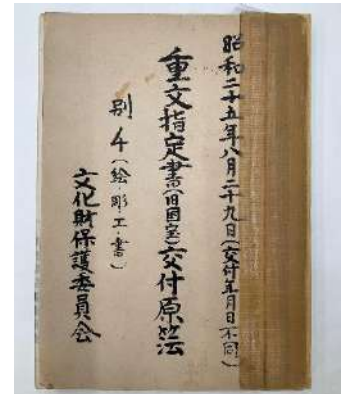 昭和二十五年八月二十九日(交付年月日不同)
重文指定書(旧国宝)交付原笠
別千(絵・彫・工・書)
文化財保護委員会